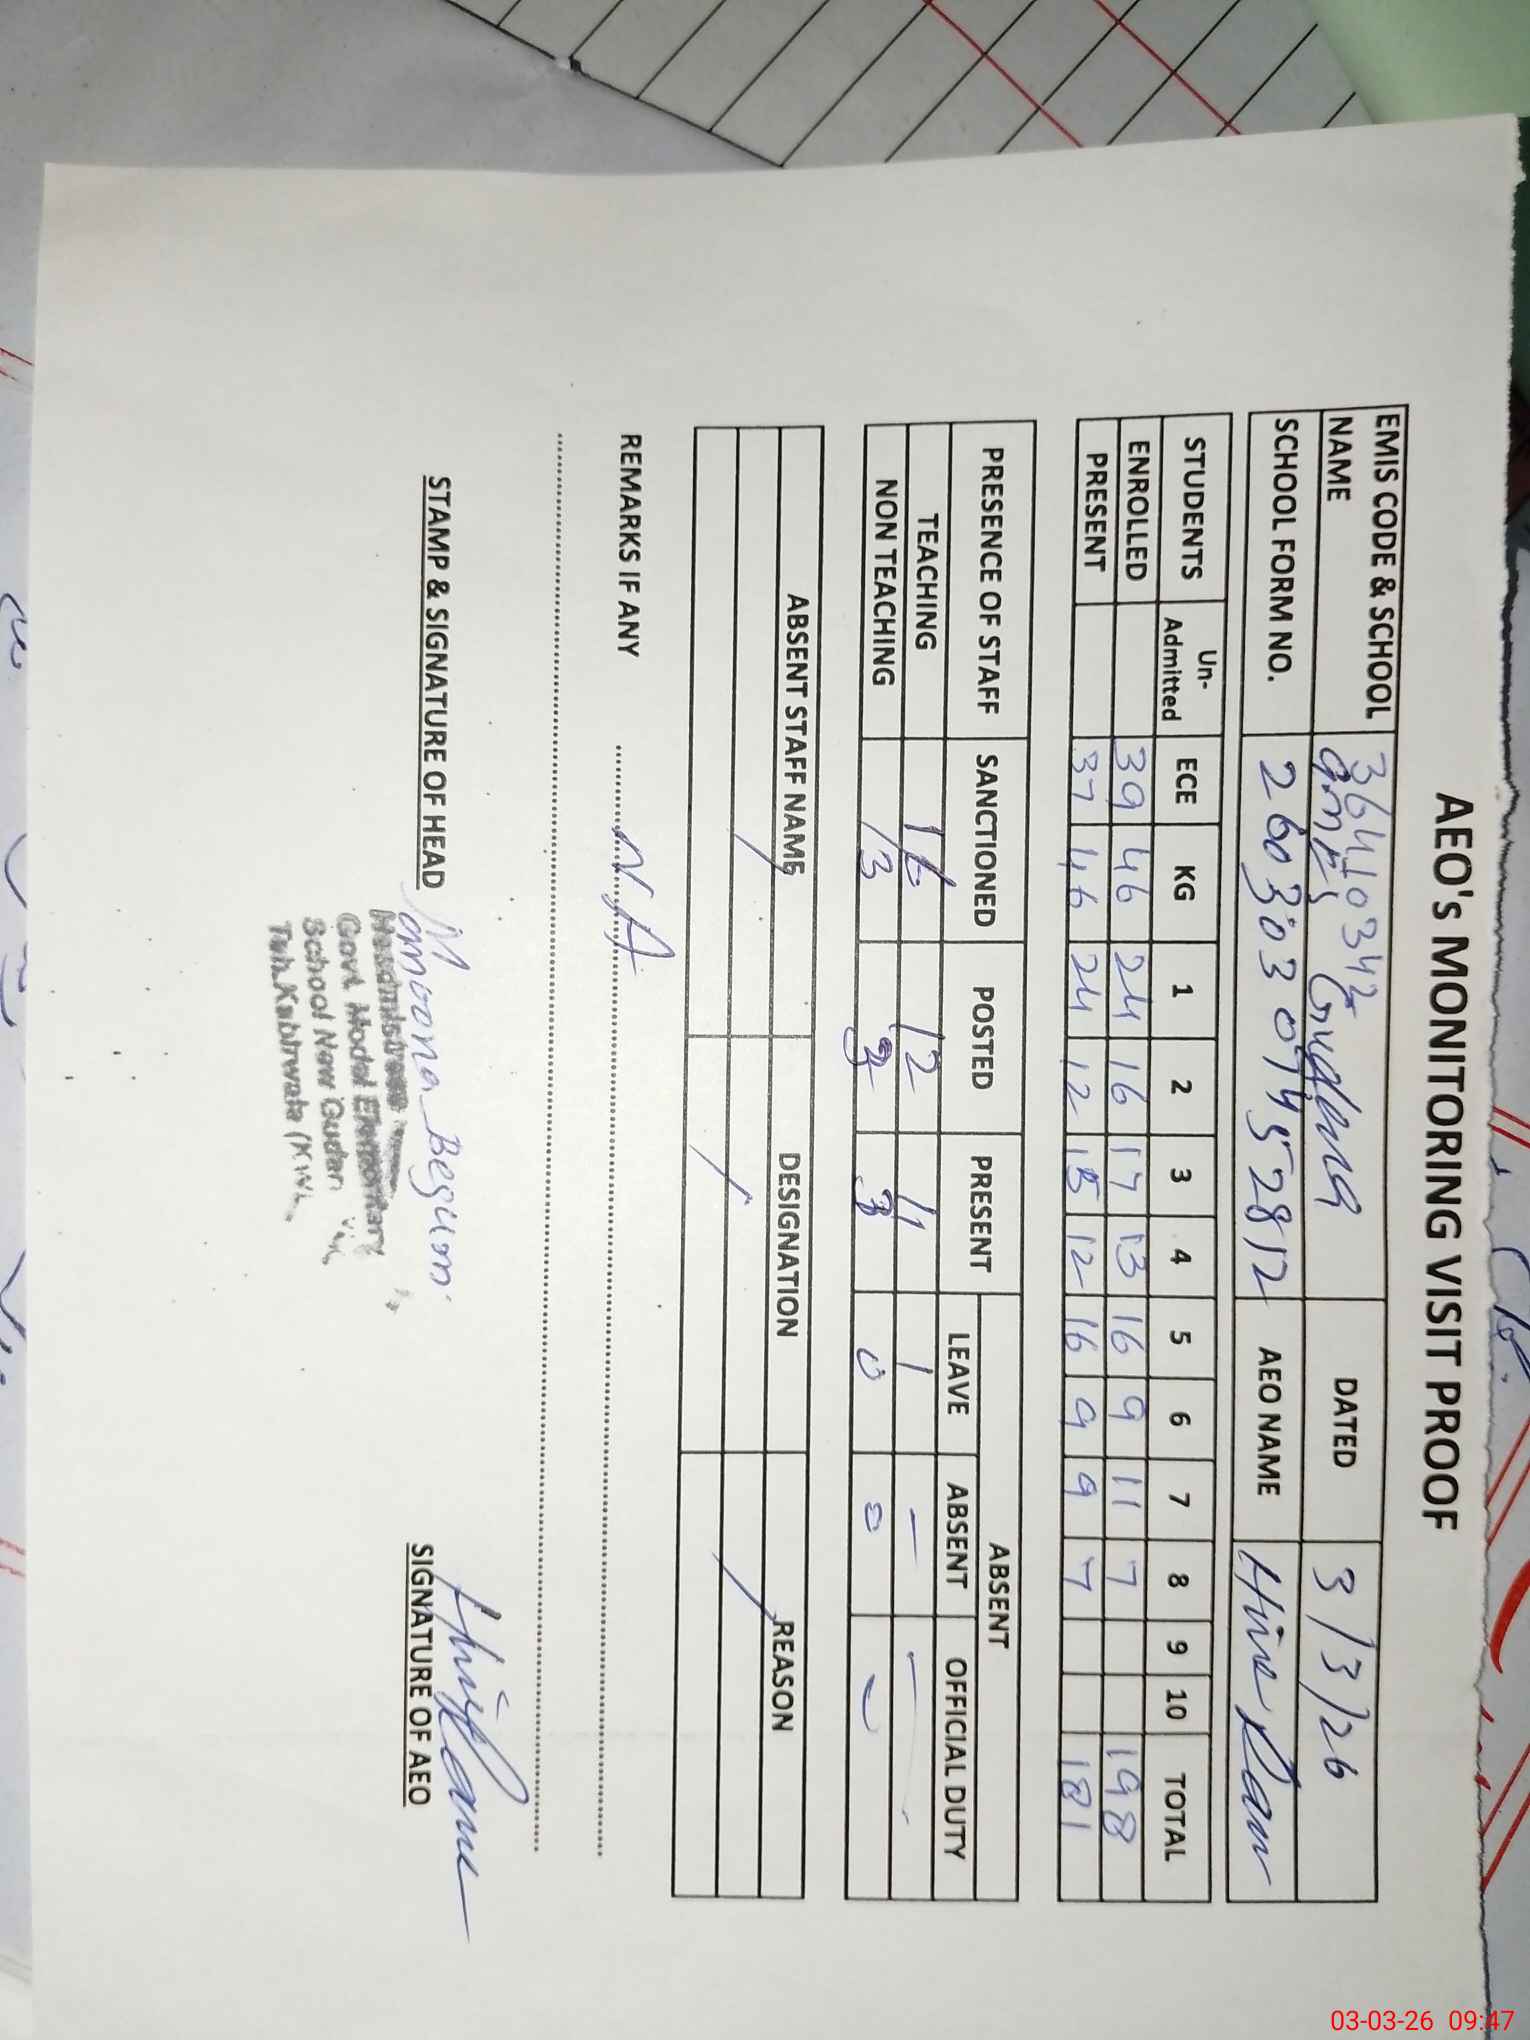 AEO's MONITORING VISIT PROOF
EMIS CODE & SCHOOL NAME 36410342 GMES DATED 3/3/26
SCHOOL FORM NO. 26030307452812 AEO NAME Hira
STUDENTS Un-Admitted ECE KG 1 2 3 4 5 6 7 8 9 10 TOTAL
ENROLLED 39 46 24 16 17 13 16 9 11 7 198
PRESENT 37 46 24 12 15 12 16 9 9 7 181
PRESENCE OF STAFF SANCTIONED POSTED PRESENT ABSENT
LEAVE ABSENT OFFICIAL DUTY
TEACHING 12 11 1 —
NON TEACHING 3 0 0
ABSENT STAFF NAME DESIGNATION REASON
REMARKS IF ANY N.A
STAMP & SIGNATURE OF HEAD Mamoona Begum
SIGNATURE OF AEO
Headmistress
Govt. Model Elementary
School New Gudan
Teh. Kabirwala (KWL
03-03-26 09:47